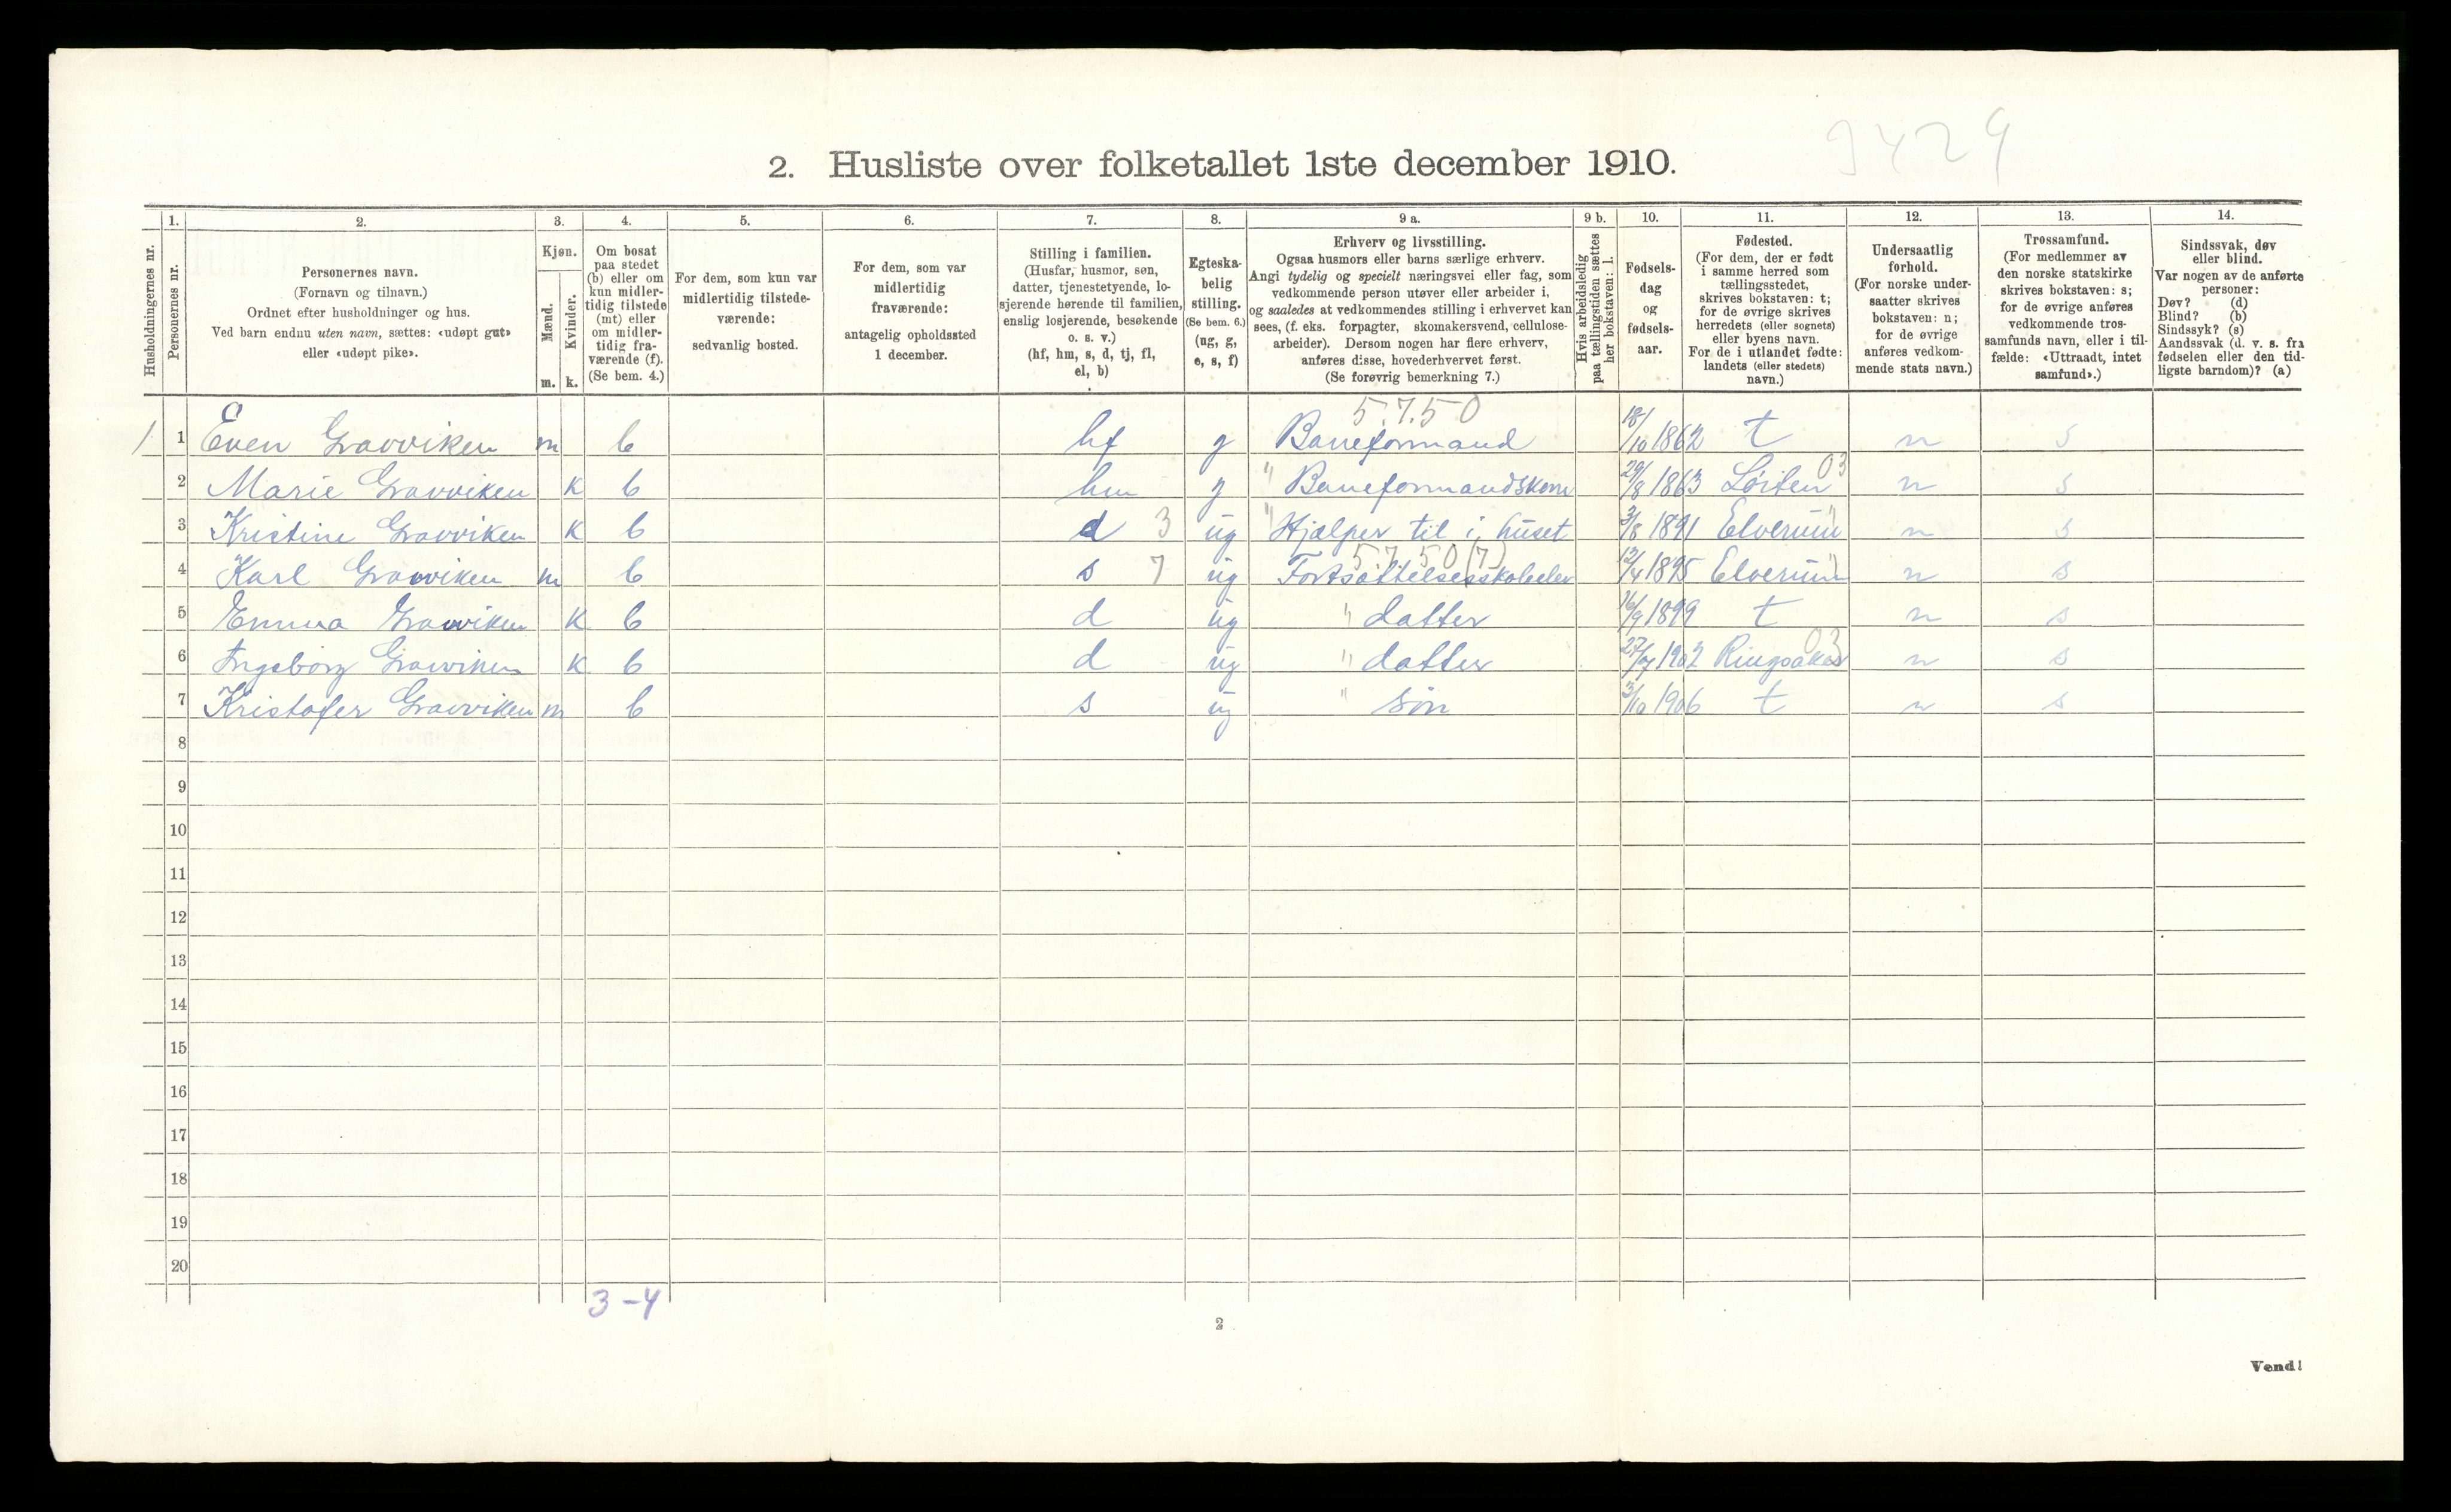 9429
2. Husliste over folketallet 1ste december 1910.
Husholdningernes nr.
1. Personernes nr.
2. Personernes navn.
(Fornavn og tilnavn.)
Ordnet efter husholdninger og hus.
Ved barn endnu uten navn, sættes: «udøpt gut»
eller «udøpt pike».
3. Kjøn.
Mænd. m.
Kvinder. k.
4. Om bosat
paa stedet
(b) eller om
kun midler-
tidig tilstede
(mt) eller
om midler-
tidig fra-
værende (f).
(Se bem. 4.)
5. For dem, som kun var
midlertidig tilstede-
værende:
sedvanlig bosted.
6. For dem, som var
midlertidig
fraværende:
antagelig opholdssted
1 december.
7. Stilling i familien.
(Husfar, husmor, søn,
datter, tjenestetyende, lo-
sjerende hørende til familien,
enslig losjerende, besøkende
o. s. v.)
(hf, hm, s, d, tj, fl,
el, b)
8. Egteska-
belig
stilling.
(Se bem. 6.)
(ug, g,
e, s, f)
9 a. Erhverv og livsstilling.
Ogsaa husmors eller barns særlige erhverv.
Angi tydelig og specielt næringsvei eller fag, som
vedkommende person utøver eller arbeider i,
og saaledes at vedkommendes stilling i erhvervet kan
sees, (f. eks. forpagter, skomakersvend, cellulose-
arbeider). Dersom nogen har flere erhverv,
anføres disse, hovederhvervet først.
(Se forøvrig bemerkning 7.)
9 b. Hvis arbeidsledig
paa tællingstiden sættes
her bokstaven: l.
10. Fødsels-
dag
og
fødsels-
aar.
11. Fødested.
(For dem, der er født
i samme herred som
tællingsstedet,
skrives bokstaven: t;
for de øvrige skrives
herredets (eller sognets)
eller byens navn.
For de i utlandet fødte:
landets (eller stedets)
navn.)
12. Undersaatlig
forhold.
(For norske under-
saatter skrives
bokstaven: n;
for de øvrige
anføres vedkom-
mende stats navn.)
13. Trossamfund.
(For medlemmer av
den norske statskirke
skrives bokstaven: s;
for de øvrige anføres
vedkommende tros-
samfunds navn, eller i til-
fælde: «Uttraadt, intet
samfund».)
14. Sindssvak, døv
eller blind.
Var nogen av de anførte
personer:
Døv? (d)
Blind? (b)
Sindssyk? (s)
Aandssvak (d. v. s. fra
fødselen eller den tid-
ligste barndom)? (a)
5.7.50
1 1 Even Gravviken m b hf g Baneformand 18/10 1862 t n s
03
2 Marie Gravviken k b hm g " Baneformandskone 29/8 1863 Løiten n s
3 Kristine Gravviken k b d 3 ug " Hjælper til i huset 3/8 1891 Elverum " n s
5.7.50 (7)
4 Karl Gravviken m b s 7 ug Fortsættelsesskoleelev 12/4 1895 Elverum " n s
5 Emma Gravviken k b d ug " datter 16/9 1899 t n s
03
6 Ingeborg Gravviken k b d ug " datter 1902 Ringsaker n s
7 Kristofer Gravviken m b s ug " søn 3/10 1906 t n s
8
9
10
11
12
13
14
15
16
17
18
19
20
3 - 4
2
Vend!